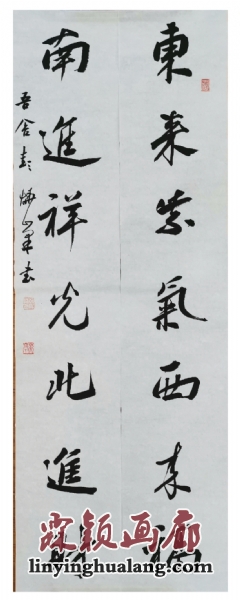 東来紫氣西来福
南進祥光北進財
吾舍彭
書
霖颖画廊
linyinghualang.com